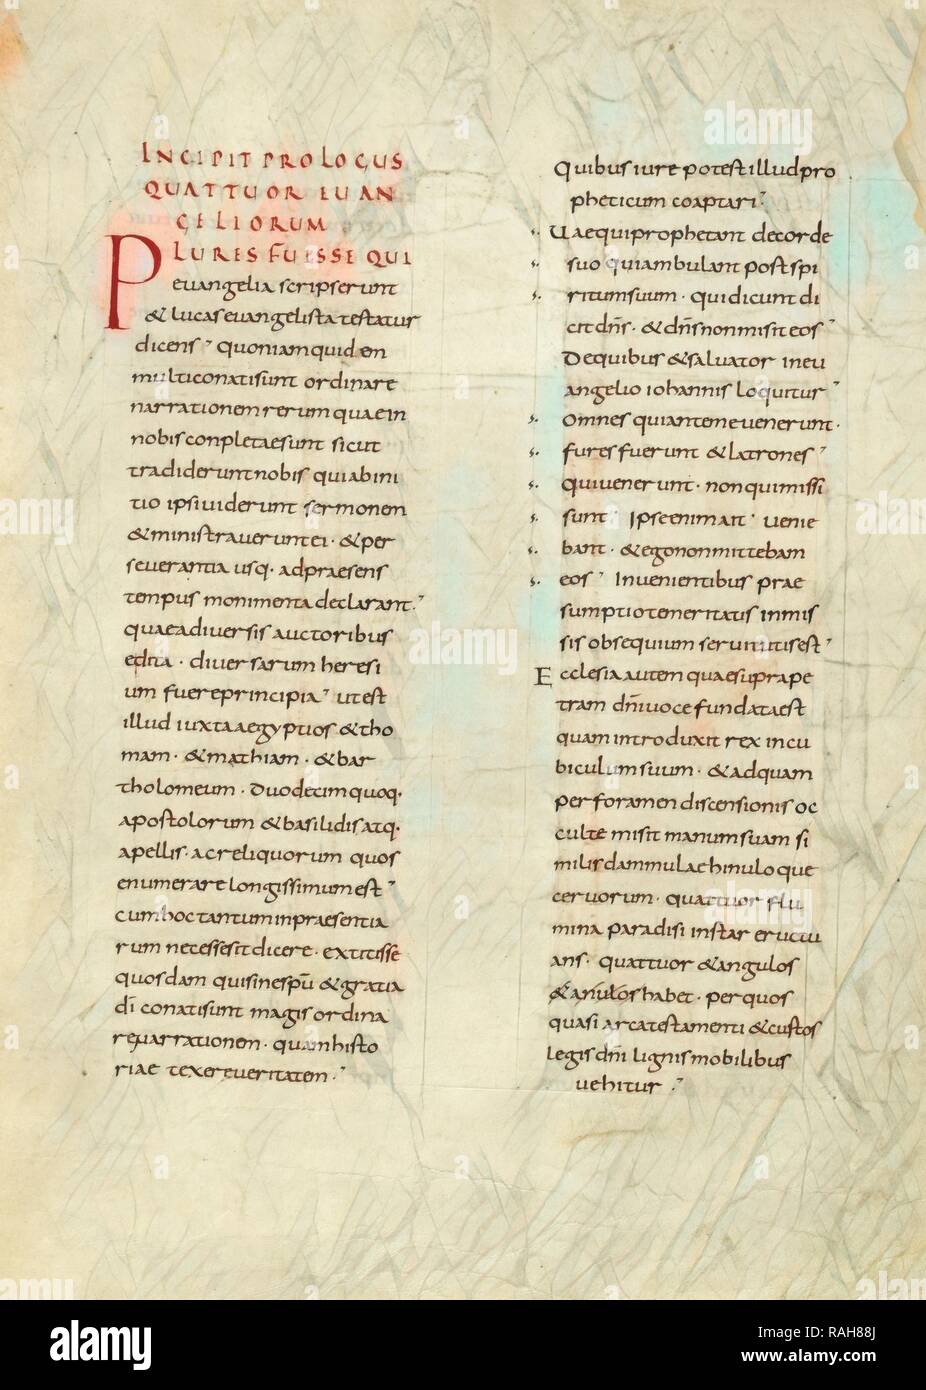 INCIPIT PROLOGUS
QUATTUOR EUAN
GELIORUM
PLURES FUISSE QUI
euangelia scripserunt
& lucas euangelista testatur
dicens quoniam quidem
multi conati sunt ordinare
narrationem rerum quae in
nobis conpletae sunt sicut
tradiderunt nobis qui ab ini
tio ipsi uiderunt sermonem
& ministrauerunt ei · & per
seuerantia usq· ad praesens
tempus monimenta declarant
quae a diuersis auctoribus
edita · diuersarum heresi
um fuere principia ut est
illud iuxta aegyptios & tho
mam · & mathiam · & bar
tholomeum · duodecim quoq·
apostolorum & basilidis atq·
apellis · ac reliquorum quos
enumerare longissimum est
cum hoc tantum in praesentia
rum necesse sit dicere · extitisse
quosdam qui sine spū & gratia
dī conati sunt magis ordina
re narrationem · quam histo
riae texere ueritatem ·
Quibus iure potest illud pro
pheticum coaptari
Uae qui prophetant de corde
suo qui ambulant post spi
ritum suum · qui dicunt di
cit dn̄s · & dn̄s non misit eos
De quibus & saluator in eu
angelio iohannis loquitur
Omnes qui ante me uenerunt ·
fures fuerunt & latrones
qui uenerunt · non qui missi
sunt Ipse enim ait uenie
bant · & ego non mittebam
eos In uenientibus prae
sumptio temeritatis in mis
sis obsequium seruitutis est
Ecclesia autem quae supra pe
tram dn̄i uoce fundata est
quam introduxit rex in cu
biculum suum · & ad quam
per foramen discensionis oc
culte misit manum suam si
milis dammulae hinuloque
ceruorum · quattuor flu
mina paradisi instar eructu
ans · quattuor & angulos
& anulos habet · per quos
quasi arca testamenti & custos
legis dn̄i lignis mobilibus
uehitur ·
alamy
Image ID: RAH88J
www.alamy.com